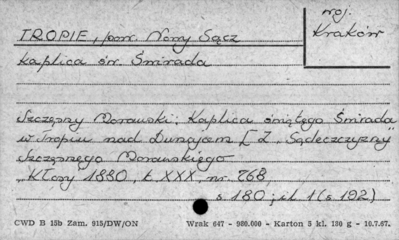 TROPIE, pow. Nowy Sącz
woj.
Kraków
Kaplica św. Świrada
Szczęsny Morawski: Kaplica świętego Świrada
w Tropiu nad Dunajcem [Z „Sądeczczyzny”
Szczęsnego Morawskiego
„Kłosy” 1880, t. XXX, nr. 768,
s 180; il. 1 (s 192)
CWD B 15b Zam. 915/DW/ON Wrak 647 - 980.000 - Karton 3 kl. 180 g - 10.7.67.